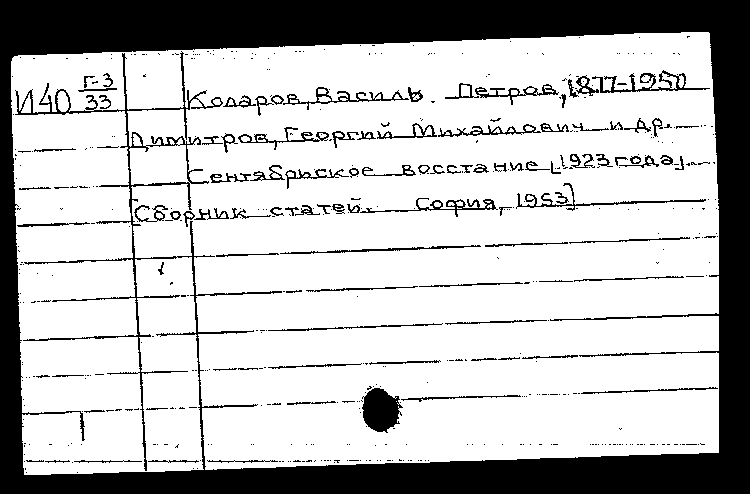 И40 Г-3/33 Коларов, Василь. Петров, 1877-1950
Димитров, Георгий Михайлович и др.
Сентябрьское восстание [1923 года].
[Сборник статей. София, 1953]